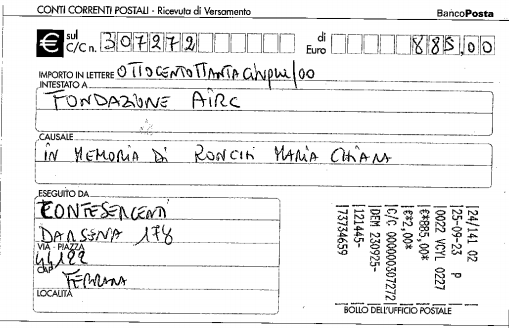 CONTI CORRENTI POSTALI - Ricevuta di Versamento BancoPosta
€ sul C/C n. 307272 di Euro 885,00
IMPORTO IN LETTERE OTTOCENTOTTANTACINQUE/00
INTESTATO A
FONDAZIONE AIRC
CAUSALE
IN MEMORIA DI RONCHI MARIA CHIARA
ESEGUITO DA
CONFESERCENTI
DARSENA 178
VIA - PIAZZA
44122
CAP
FERRARA
LOCALITÀ
24/141 02
25-09-23 P
0022 VCYL 0227
€*885,00*
€*2,00*
C/C 000000307272
DEM 230925-
121445-
73734659
BOLLO DELL'UFFICIO POSTALE